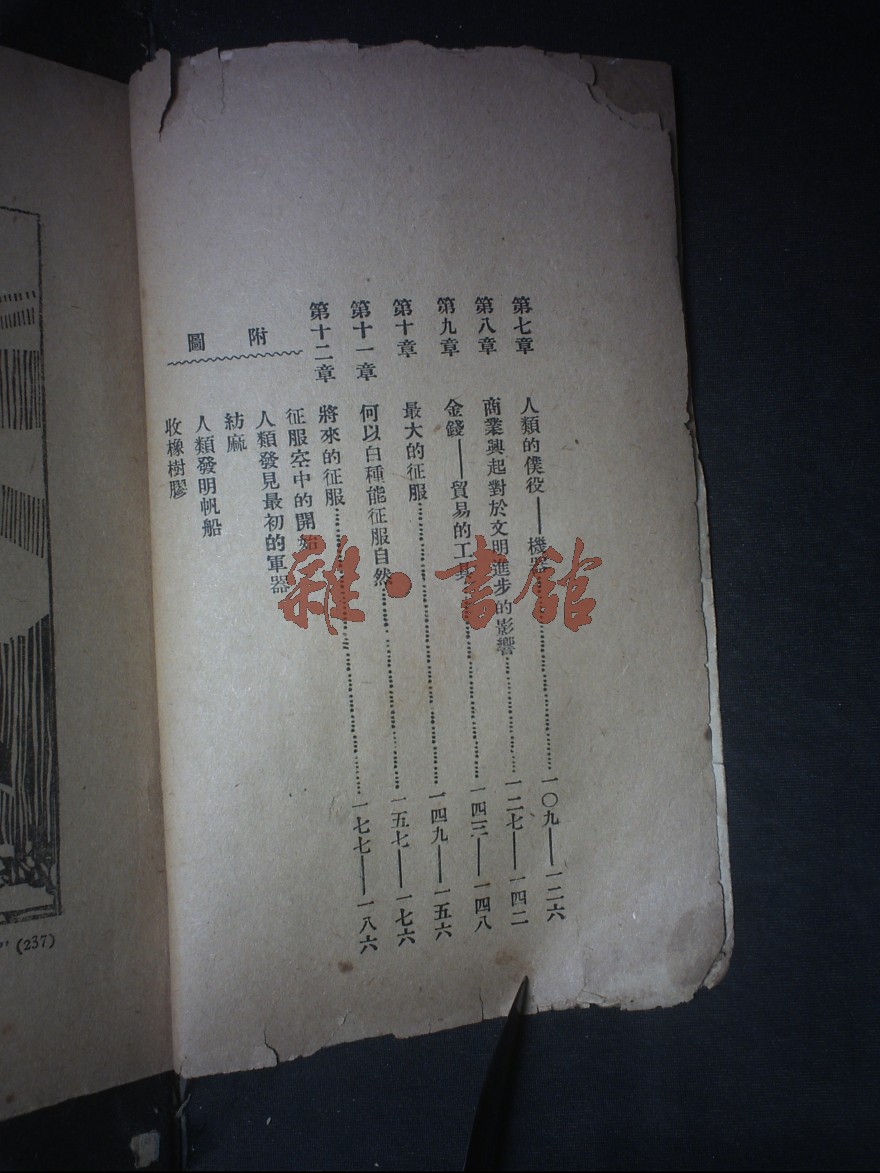 第七章 人類的僕役——機器……一〇九——一二六
第八章 商業興起對於文明進步的影響……一二七——一四二
第九章 金錢——貿易的工具……一四三——一四八
第十章 最大的征服……一四九——一五六
第十一章 何以白種能征服自然……一五七——一七六
第十二章 將來的征服……一七七——一八六
附圖
征服空中的開始
人類發見最初的軍器
紡麻
人類發明帆船
收橡樹膠
雜·書館
(237)